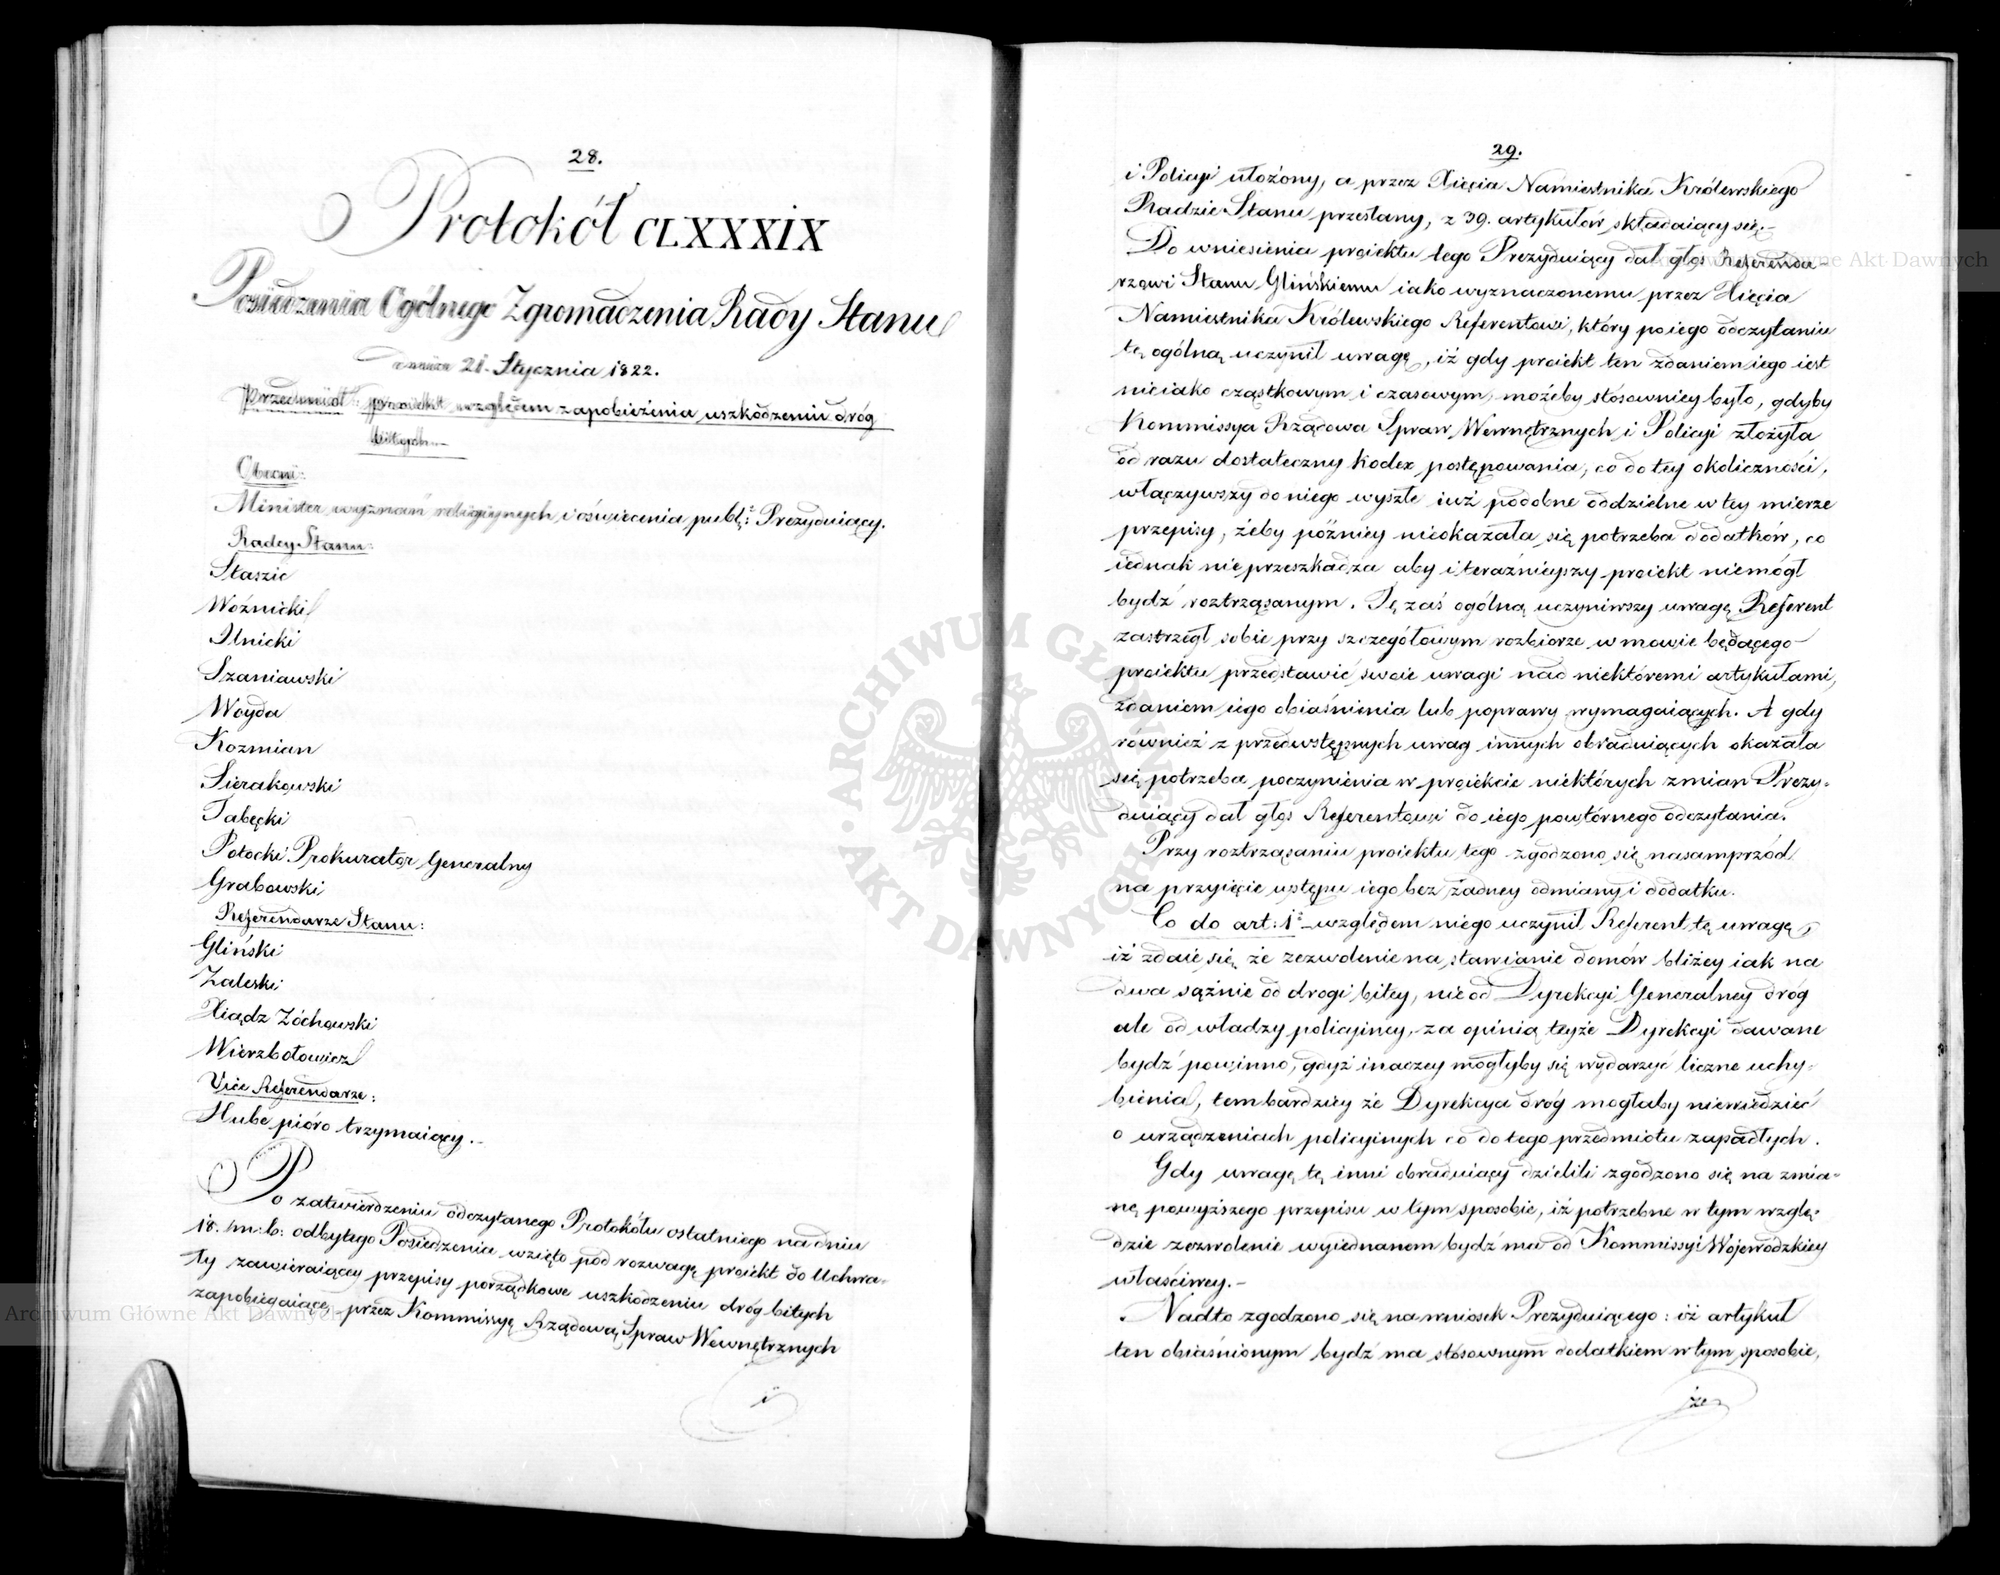 28.
Protokół CLXXXIX
Posiedzenia Ogólnego Zgromadzenia Rady Stanu
dnia 21. Stycznia 1822.
Przedmiot: proiekt względem zapobieżenia uszkodzeniu dróg
bitych.—
Obecni:
Minister wyznań religiynych i oświecenia publ: Prezyduiący.
Radcy Stanu:
Staszic
Woźnicki
Ilnicki
Szaniawski
Woyda
Kozmian
Sierakowski
Tabęcki
Potocki Prokurator Generalny
Grabowski
Referendarze Stanu:
Gliński
Zaleski
Xiądz Żóchowski
Wierzbołowicz
Vice Referendarze:
Hube pióro trzymaiący.—
Po zatwierdzeniu odczytanego Protokółu ostatniego na dniu
18. m: b: odbytego Posiedzenia wzięto pod rozwagę proiekt do Uchwa-
ły zawieraiącey przepisy porządkowe uszkodzeniu dróg bitych
zapobiegaiące, przez Kommissyę Rządową Spraw Wewnętrznych
i
29.
i Policyi ułożony, a przez Xięcia Namiestnika Królewskiego
Radzie Stanu przesłany, z 39. artykułów składaiący się.—
Do wniesienia proiektu tego Prezyduiący dał głos Referenda-
rzowi Stanu Glińskiemu iako wyznaczonemu przez Xięcia
Namiestnika Królewskiego Referentowi, który po iego odczytaniu
tę ogólną uczynił uwagę, iż gdy proiekt ten zdaniem iego iest
nieiako cząstkowym i czasowym, możeby stósowniey było, gdyby
Kommissya Rządowa Spraw Wewnętrznych i Policyi złożyła
od razu dostateczny kodex postępowania, co do tey okoliczności,
włączywszy do niego wyszłe iuż podobne oddzielne w tey mierze
przepisy, żeby późniey nieokazała się potrzeba dodatków, co
iednak nie przeszkadza aby i teraźnieyszy proiekt niemógł
bydź roztrząsanym. Tę zaś ogólną uczyniwszy uwagę Referent
zastrzegł sobie przy szczegółowym rozbiorze w mowie będącego
proiektu przedstawić swoie uwagi nad niektóremi artykułami,
zdaniem iego obiaśnienia lub poprawy wymagaiących. A gdy
również z przedwstępnych uwag innych obraduiących okazała
się potrzeba poczynienia w proiekcie niektórych zmian Prezy-
duiący dał głos Referentowi do iego powtórnego odczytania.
Przy roztrząsaniu proiektu tego zgodzono się nasamprzód
na przyięcie ustępu iego bez żadney odmiany i dodatku.
Co do art: 1° względem niego uczynił Referent tę uwagę,
iż zdaie się, że zezwolenie na stawianie domów bliżey iak na
dwa sążnie od drogi bitey, nie od Dyrekcyi Generalney dróg
ale od władzy policyiney, za opinią teyże Dyrekcyi dawane
bydź powinno, gdyż inaczey mogłyby się wydarzyć liczne uchy-
bienia, tembardziey że Dyrekcya dróg mogłaby niewiedzieć
o urządzeniach policyinych co do tego przedmiotu zapadłych.
Gdy uwagę tę inni obraduiący dzielili zgodzono się na zmia-
nę powyższego przepisu w tym sposobie, iż potrzebne w tym wzglę-
dzie zezwolenie wyiednanem bydź ma od Kommissyi Wojewódzkiey
właściwey.—
Nadto zgodzono się na wniosek Prezyduiącego: iż artykuł
ten obiaśnionym bydź ma stósownym dodatkiem w tym sposobie,
że
ARCHIWUM GŁÓWNE AKT DAWNYCH
Archiwum Główne Akt Dawnych
Archiwum Główne Akt Dawnych